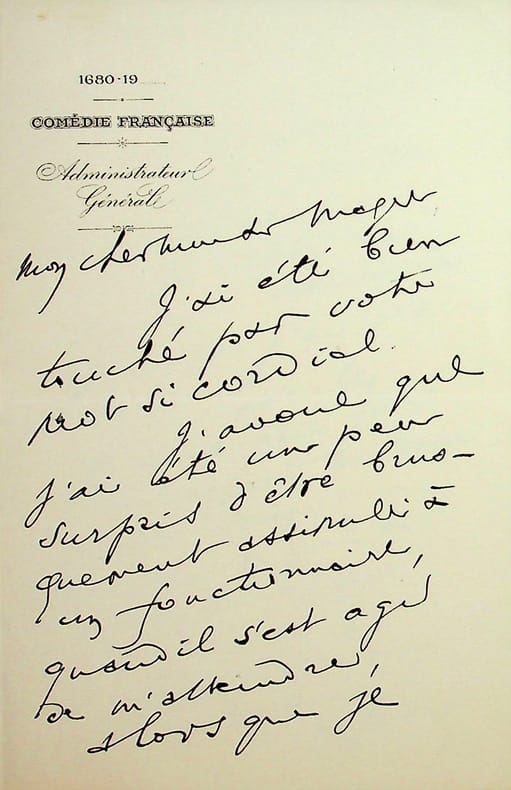 1680-19
COMÉDIE FRANÇAISE
Administrateur
Général
Mon cher
J'ai été bien
touché par votre
mot si cordial.
J'avoue que
j'ai été un peu
surpris d'être brus-
quement assimilé à
un fonctionnaire,
quand il s'est agi
de m'atteindre,
alors que je